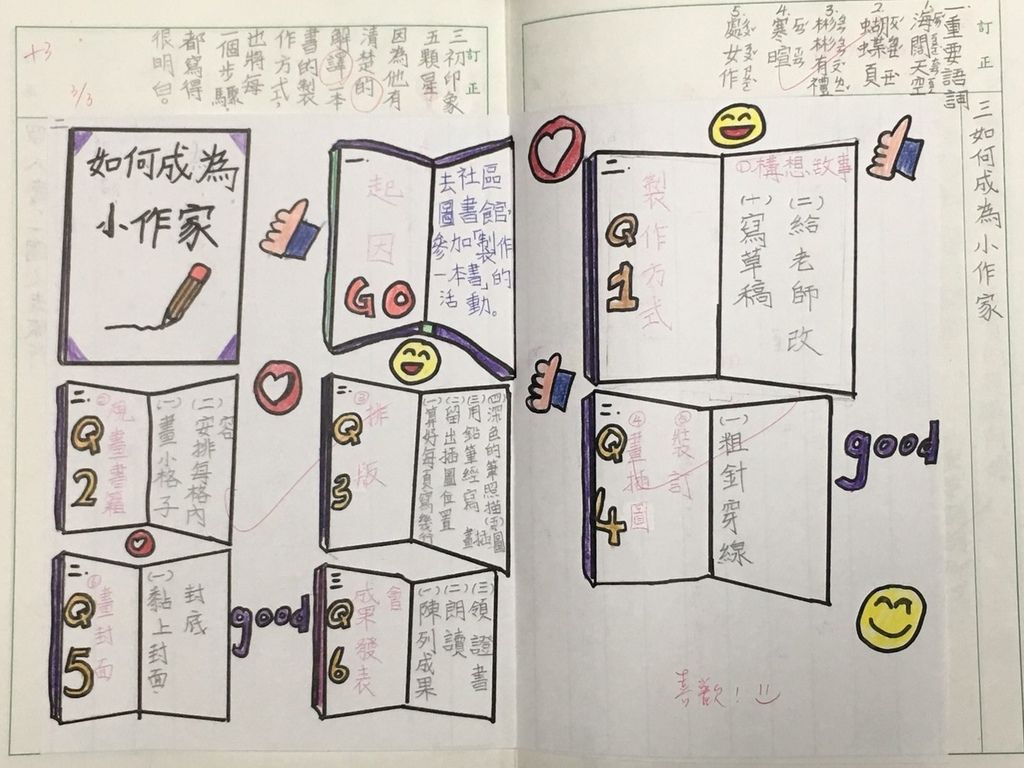 三如何成為小作家
訂正
一重要語詞
1.海闊天空
2.蝴蝶頁
3.彬彬有禮
4.寒暄
5.處女作
訂正
三初印象
五顆星
因為他有
清楚的
解譯一本
書的製
作方式,
也將每
一個步驟
都寫得
很明白。
+3
3/3
二
如何成為
小作家
一.
起因
GO
去社區
圖書館,
參加「製作
一本書」的
活動。
二
Q1
製作方式
①構想故事
(一)寫草稿
(二)給老師改
二.
Q2
②
畫書籍
(一)畫小格子
(二)安排每格內
容
二.
Q3
③排版
(一)算好每頁寫幾行
(二)留出插圖位置
(三)用鉛筆經寫
(四)深色的筆照描
畫插圖
二.
Q4
④畫插圖
⑤裝訂
(一)粗針穿線
good
二.
Q5
⑥畫封面
(一)黏上封面
封底
good
三
Q6
成果發表
會
(一)陳列成果
(二)朗讀
(三)領證書
喜歡!